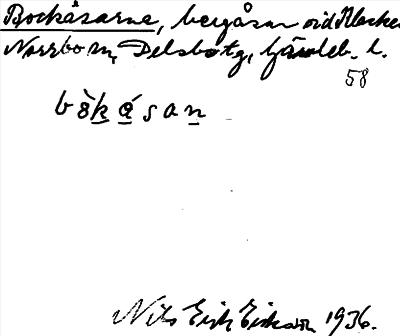 Bockåsarna, bergåsar vid Klacke
Norrbo sn, Delsbo tg, Gävleb. l.
58
bòkåsan
Nils Erik Eriksson 1936.